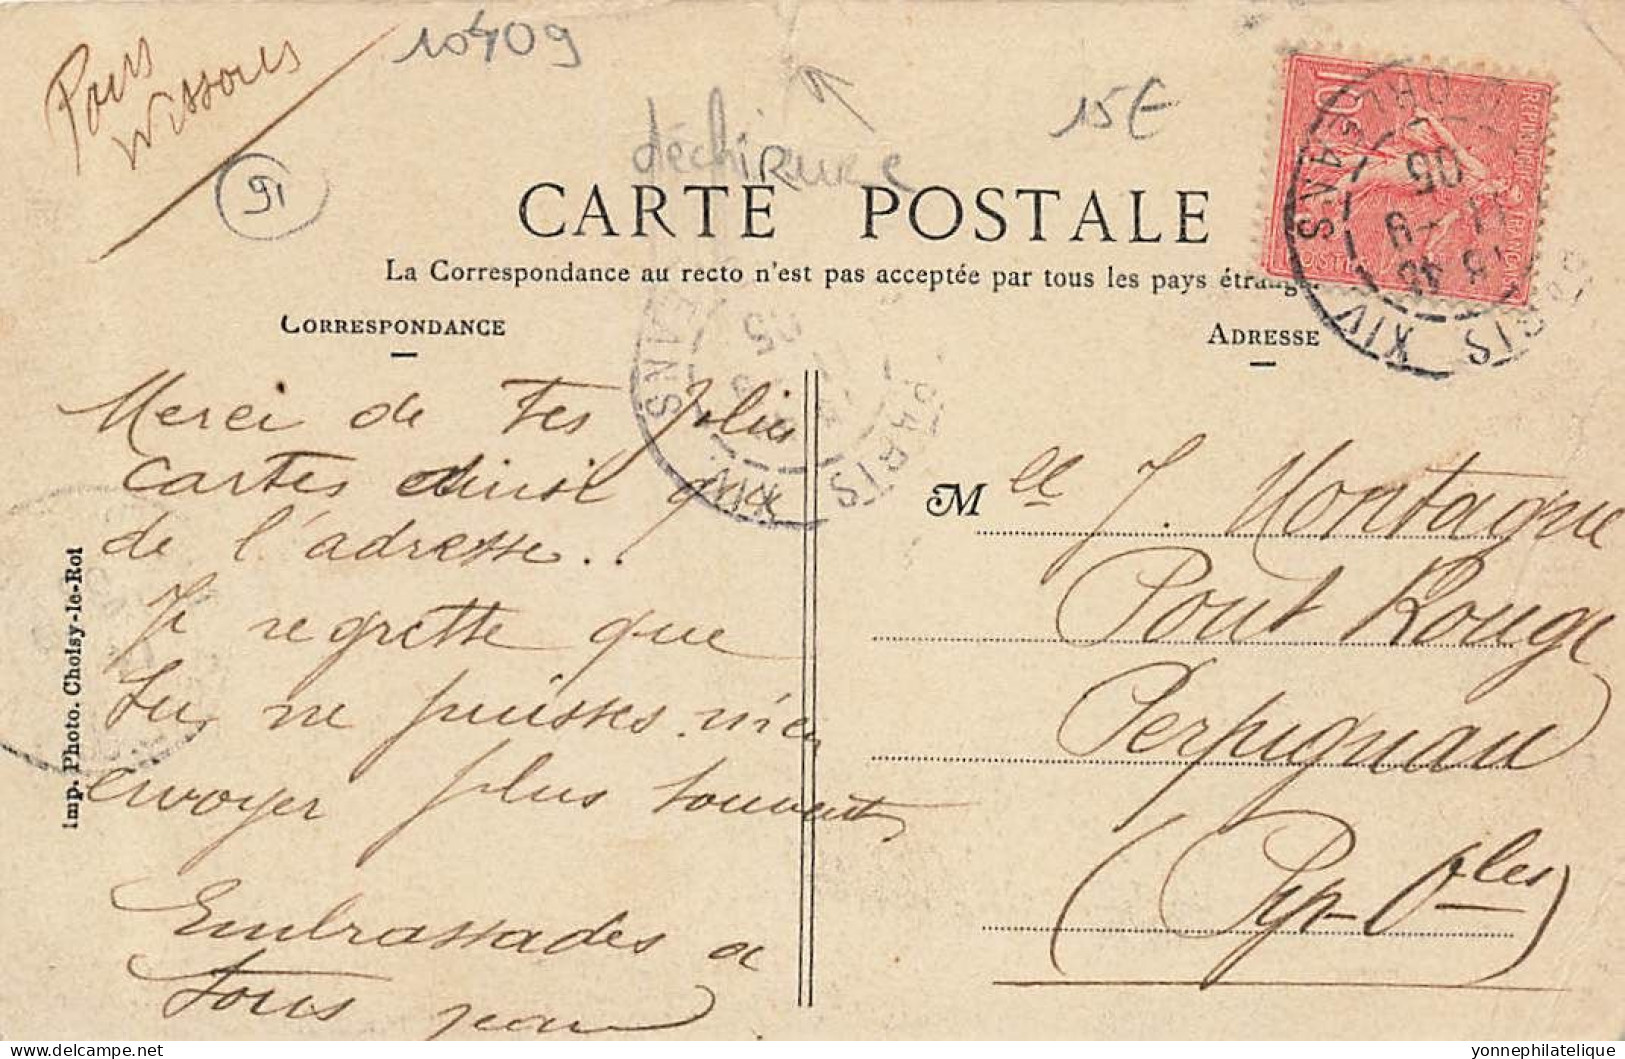 Paris
Wissous
10409
déchiRure
15€
91
CARTE POSTALE
La Correspondance au recto n'est pas acceptée par tous les pays étrang.
CORRESPONDANCE
ADRESSE
Merci de tes jolies
cartes ainsi que
de l'adresse..
Je regrette que
tu ne puisses m'en
envoyer plus souvent,
Embrassades a
tous Jean
Imp. Photo. Choisy-le-Roi
Mlle J. Montagne
Pont Rouge
Perpignan
(Pyr-Oles)
10
POSTES
PARIS XIV
05
PARIS XIV
05
yonnephilatelie - delcampe.net